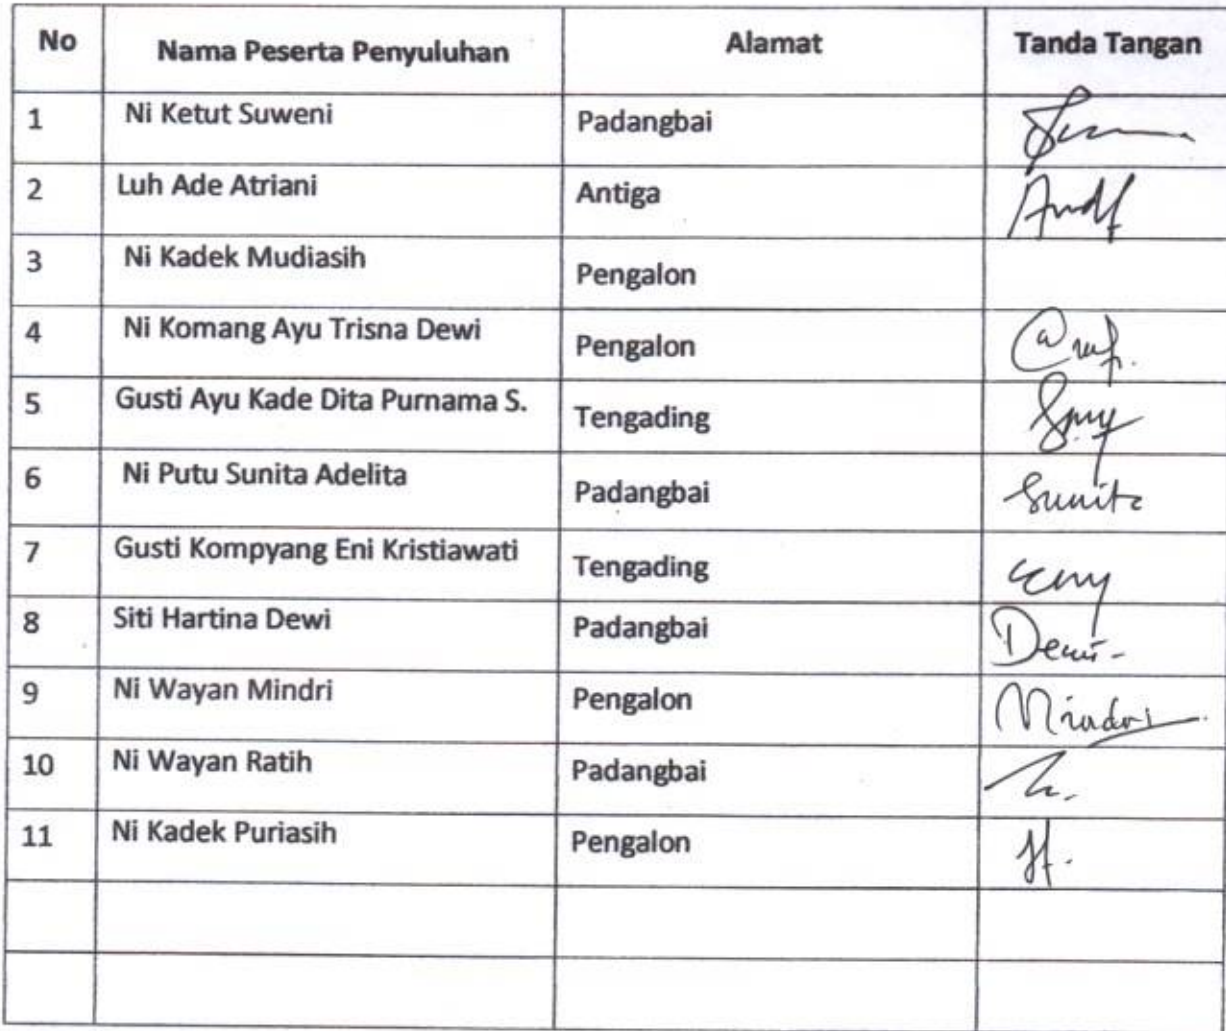 No Nama Peserta Penyuluhan Alamat Tanda Tangan
1 Ni Ketut Suweni Padangbai
2 Luh Ade Atriani Antiga
3 Ni Kadek Mudiasih Pengalon
4 Ni Komang Ayu Trisna Dewi Pengalon
5 Gusti Ayu Kade Dita Purnama S. Tengading
6 Ni Putu Sunita Adelita Padangbai Sunita
7 Gusti Kompyang Eni Kristiawati Tengading
8 Siti Hartina Dewi Padangbai Dewi
9 Ni Wayan Mindri Pengalon
10 Ni Wayan Ratih Padangbai
11 Ni Kadek Puriasih Pengalon